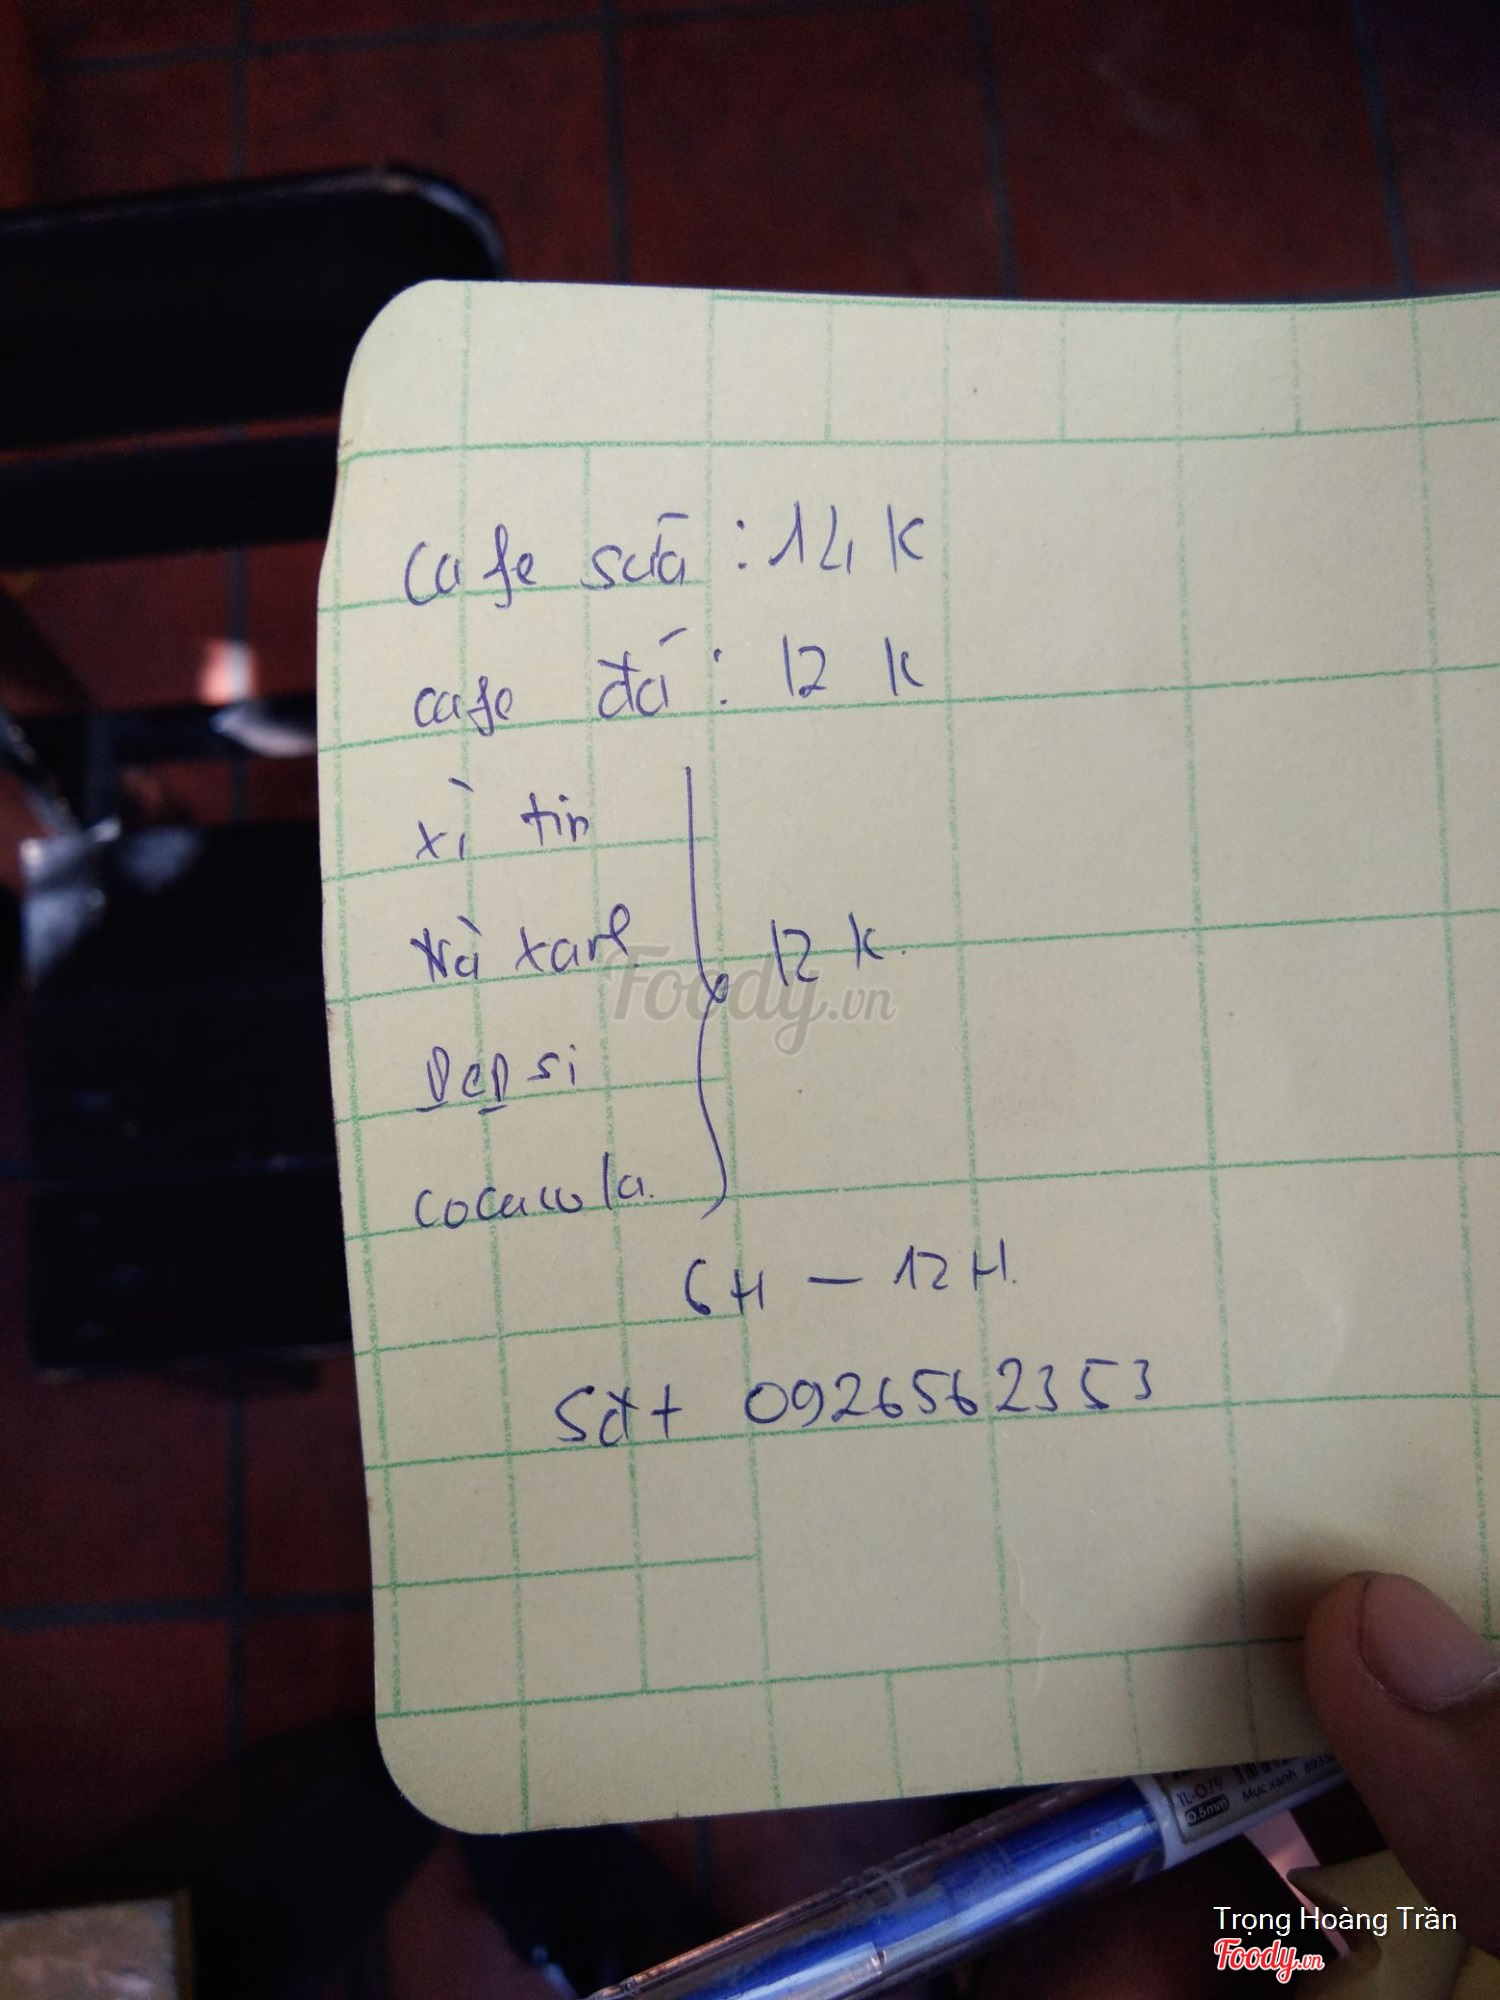 cafe sữa : 14 K
cafe đá : 12 K
xì tin
xá xarl
Pepsi
cocacola.
12 K.
6H — 12H.
Sđt 0926562353
Foody.vn
1L-079
0.6mm
Mực xanh
Trọng Hoàng Trần
Foody.vn